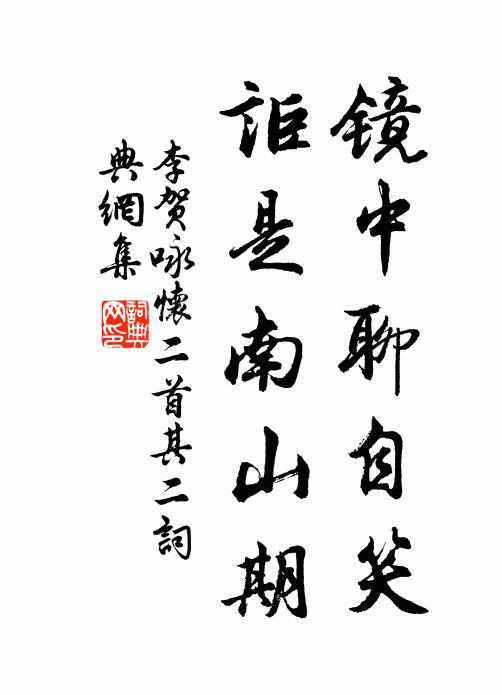 镜中聊自笑
詎是南山期
李贺咏懷二首其二詞
典網集
詞典
网印